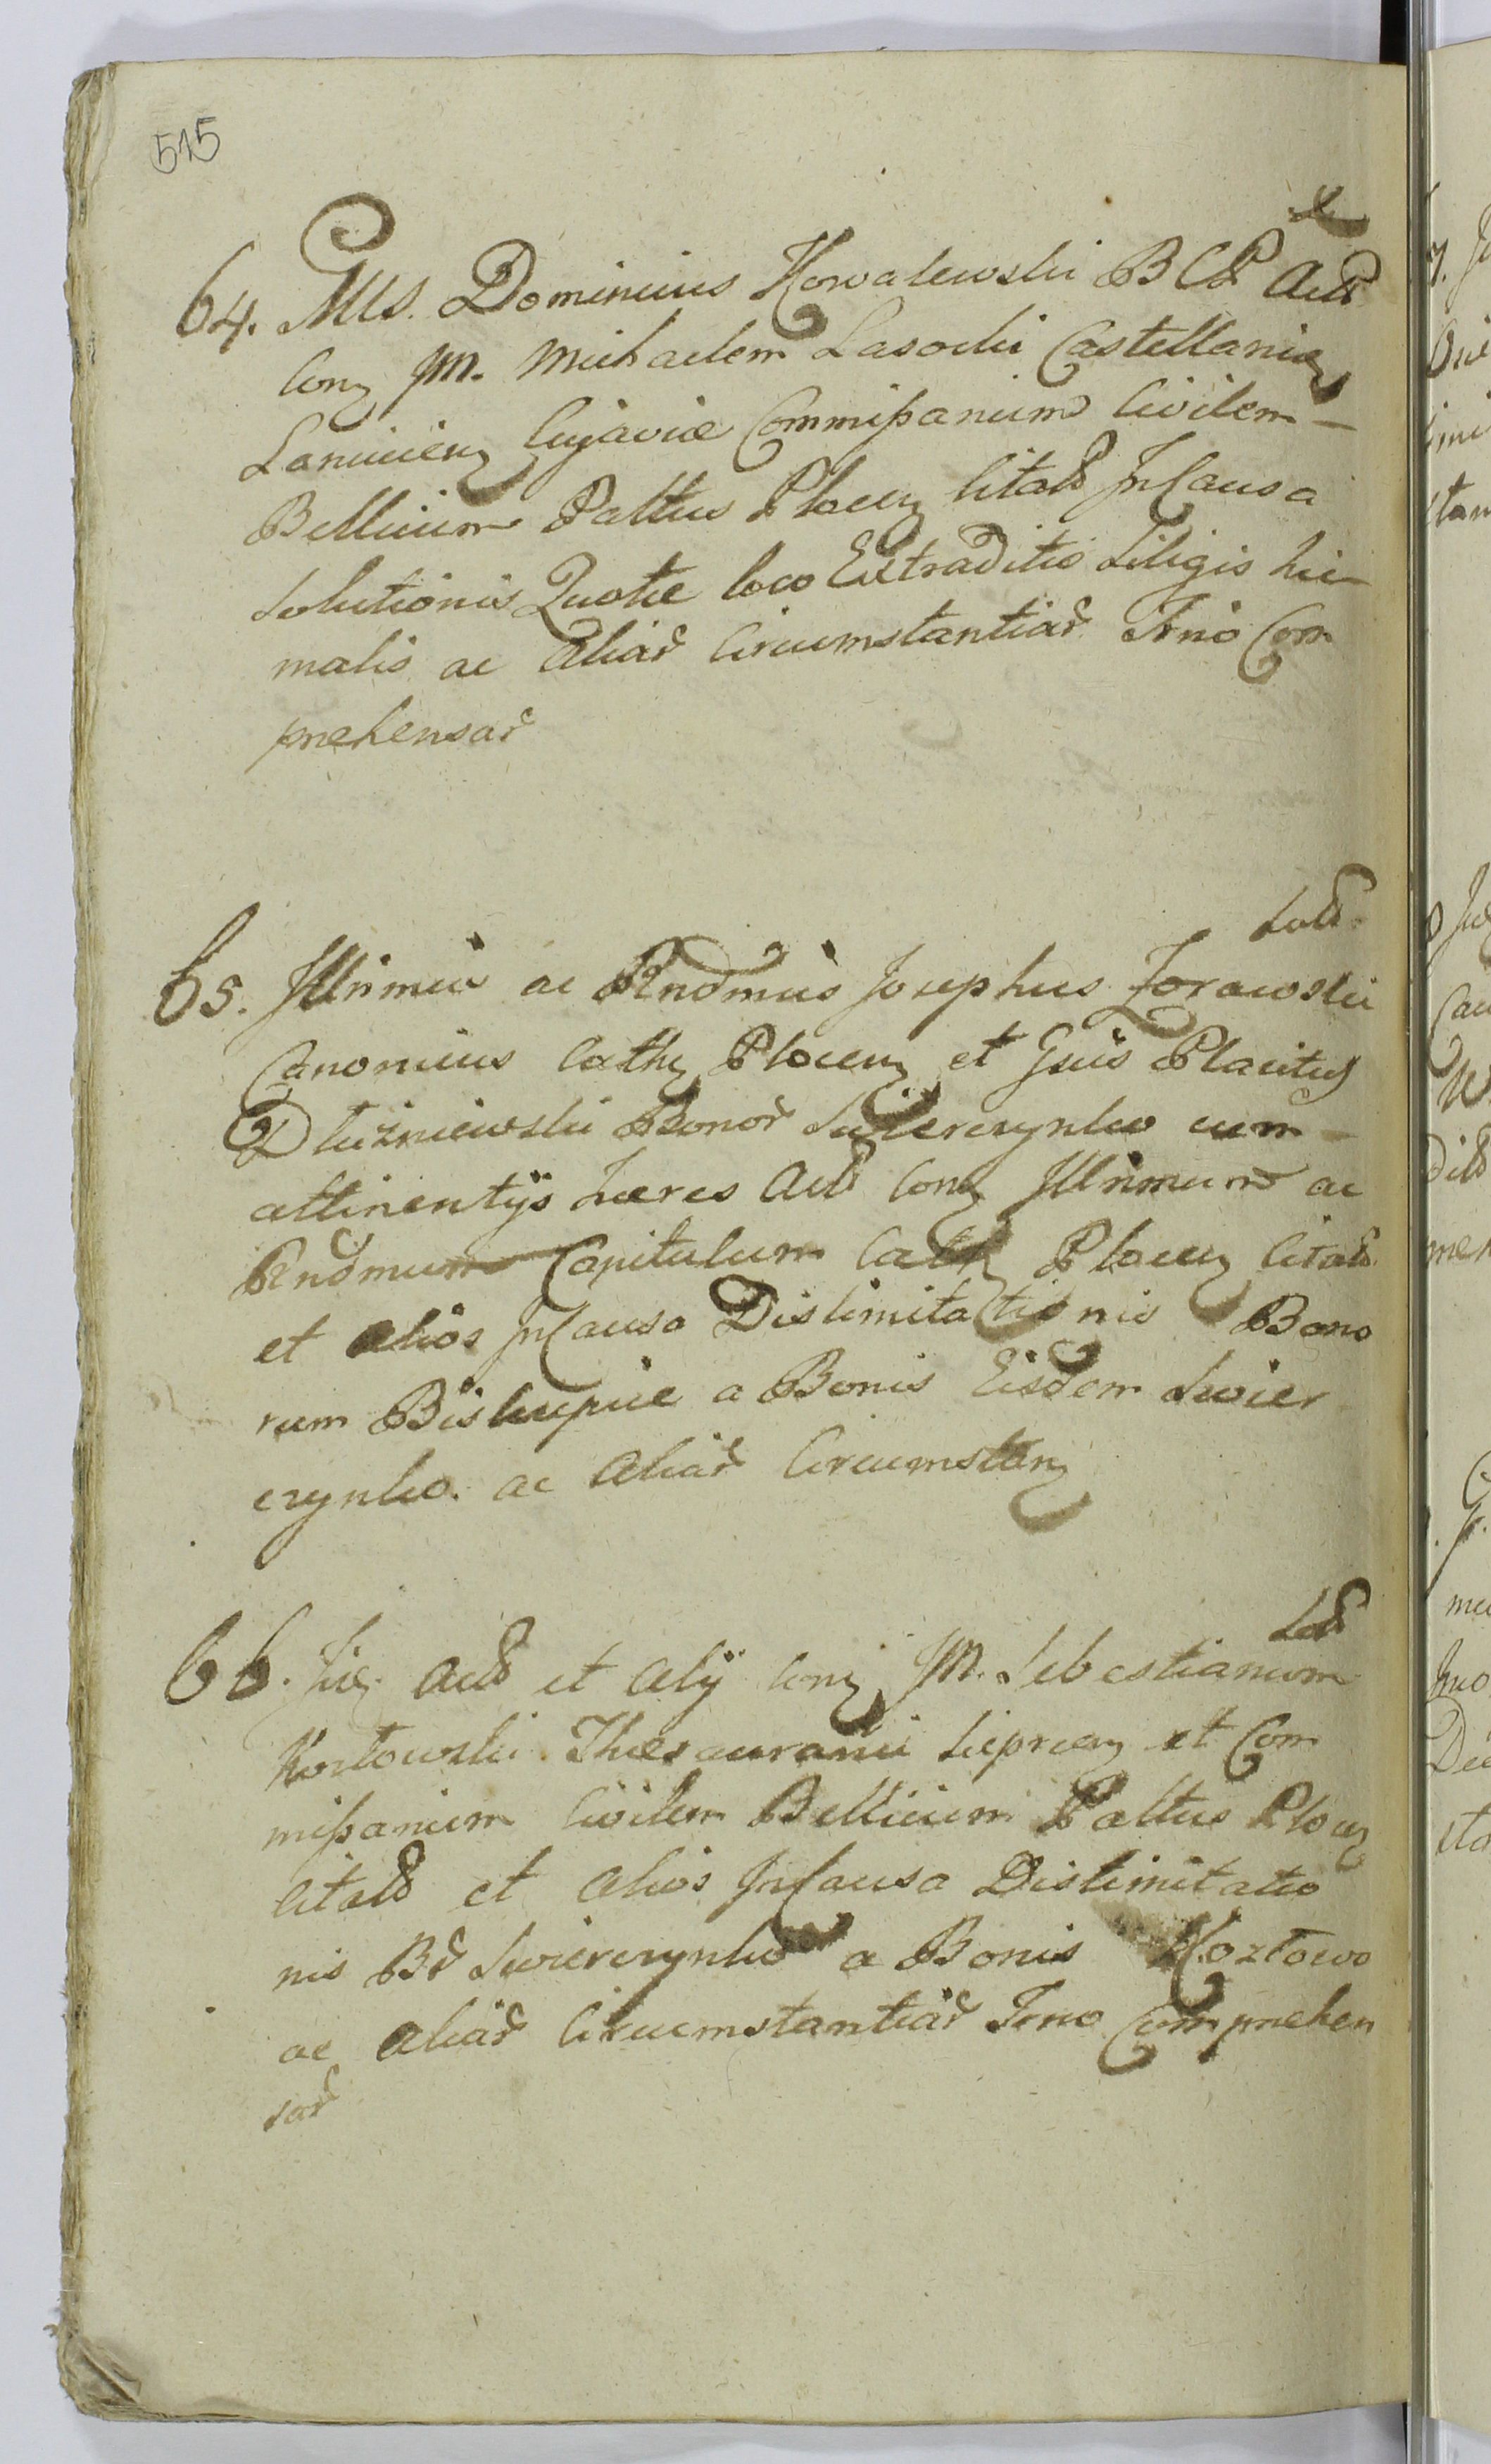 515
64. Mls. Dominicus Kowalewski B C P Actd
Conz JM. Michaelem Lasocki Castellanicz
Lanicienz Cujaviæ Commißarium Civilem
Bellicum Pattus Plocenz Citatd In Causa
Solutionis Quotæ loco Extraditio Siligis hie-
malis ac Aliar Circumstantiar Trno Com
prehensar
Sold
65. Jllrimus ac Rndmus Josephus Zorawski
Canonicus Cathz Plocenz et Gsus Placitus
Dłużniewski Bonor Swierczynko cum
attinentÿs Hæres Actd Conz Jllrimum ac
Rndmum Capitulum Cath Plocenz Citatd
et Alios In Causa Dislimitationis Bono
rum Biskupice a Bonis Eisdem Swier
czynko. ac Aliar Circumstanz
66. Jiz. Actd et Alÿ Conz JM. Sebestianum
Kozłowski Thesaurarii Sieprcenz et Com
mißarium Civilem Bellicum Pattus Plocenz
Citatd et Alios In Causa Dislimitatio
nis Br Swierczynko a Bonis Kozłowo
ac Aliar Circumstantiar Trno Comprehen
sar